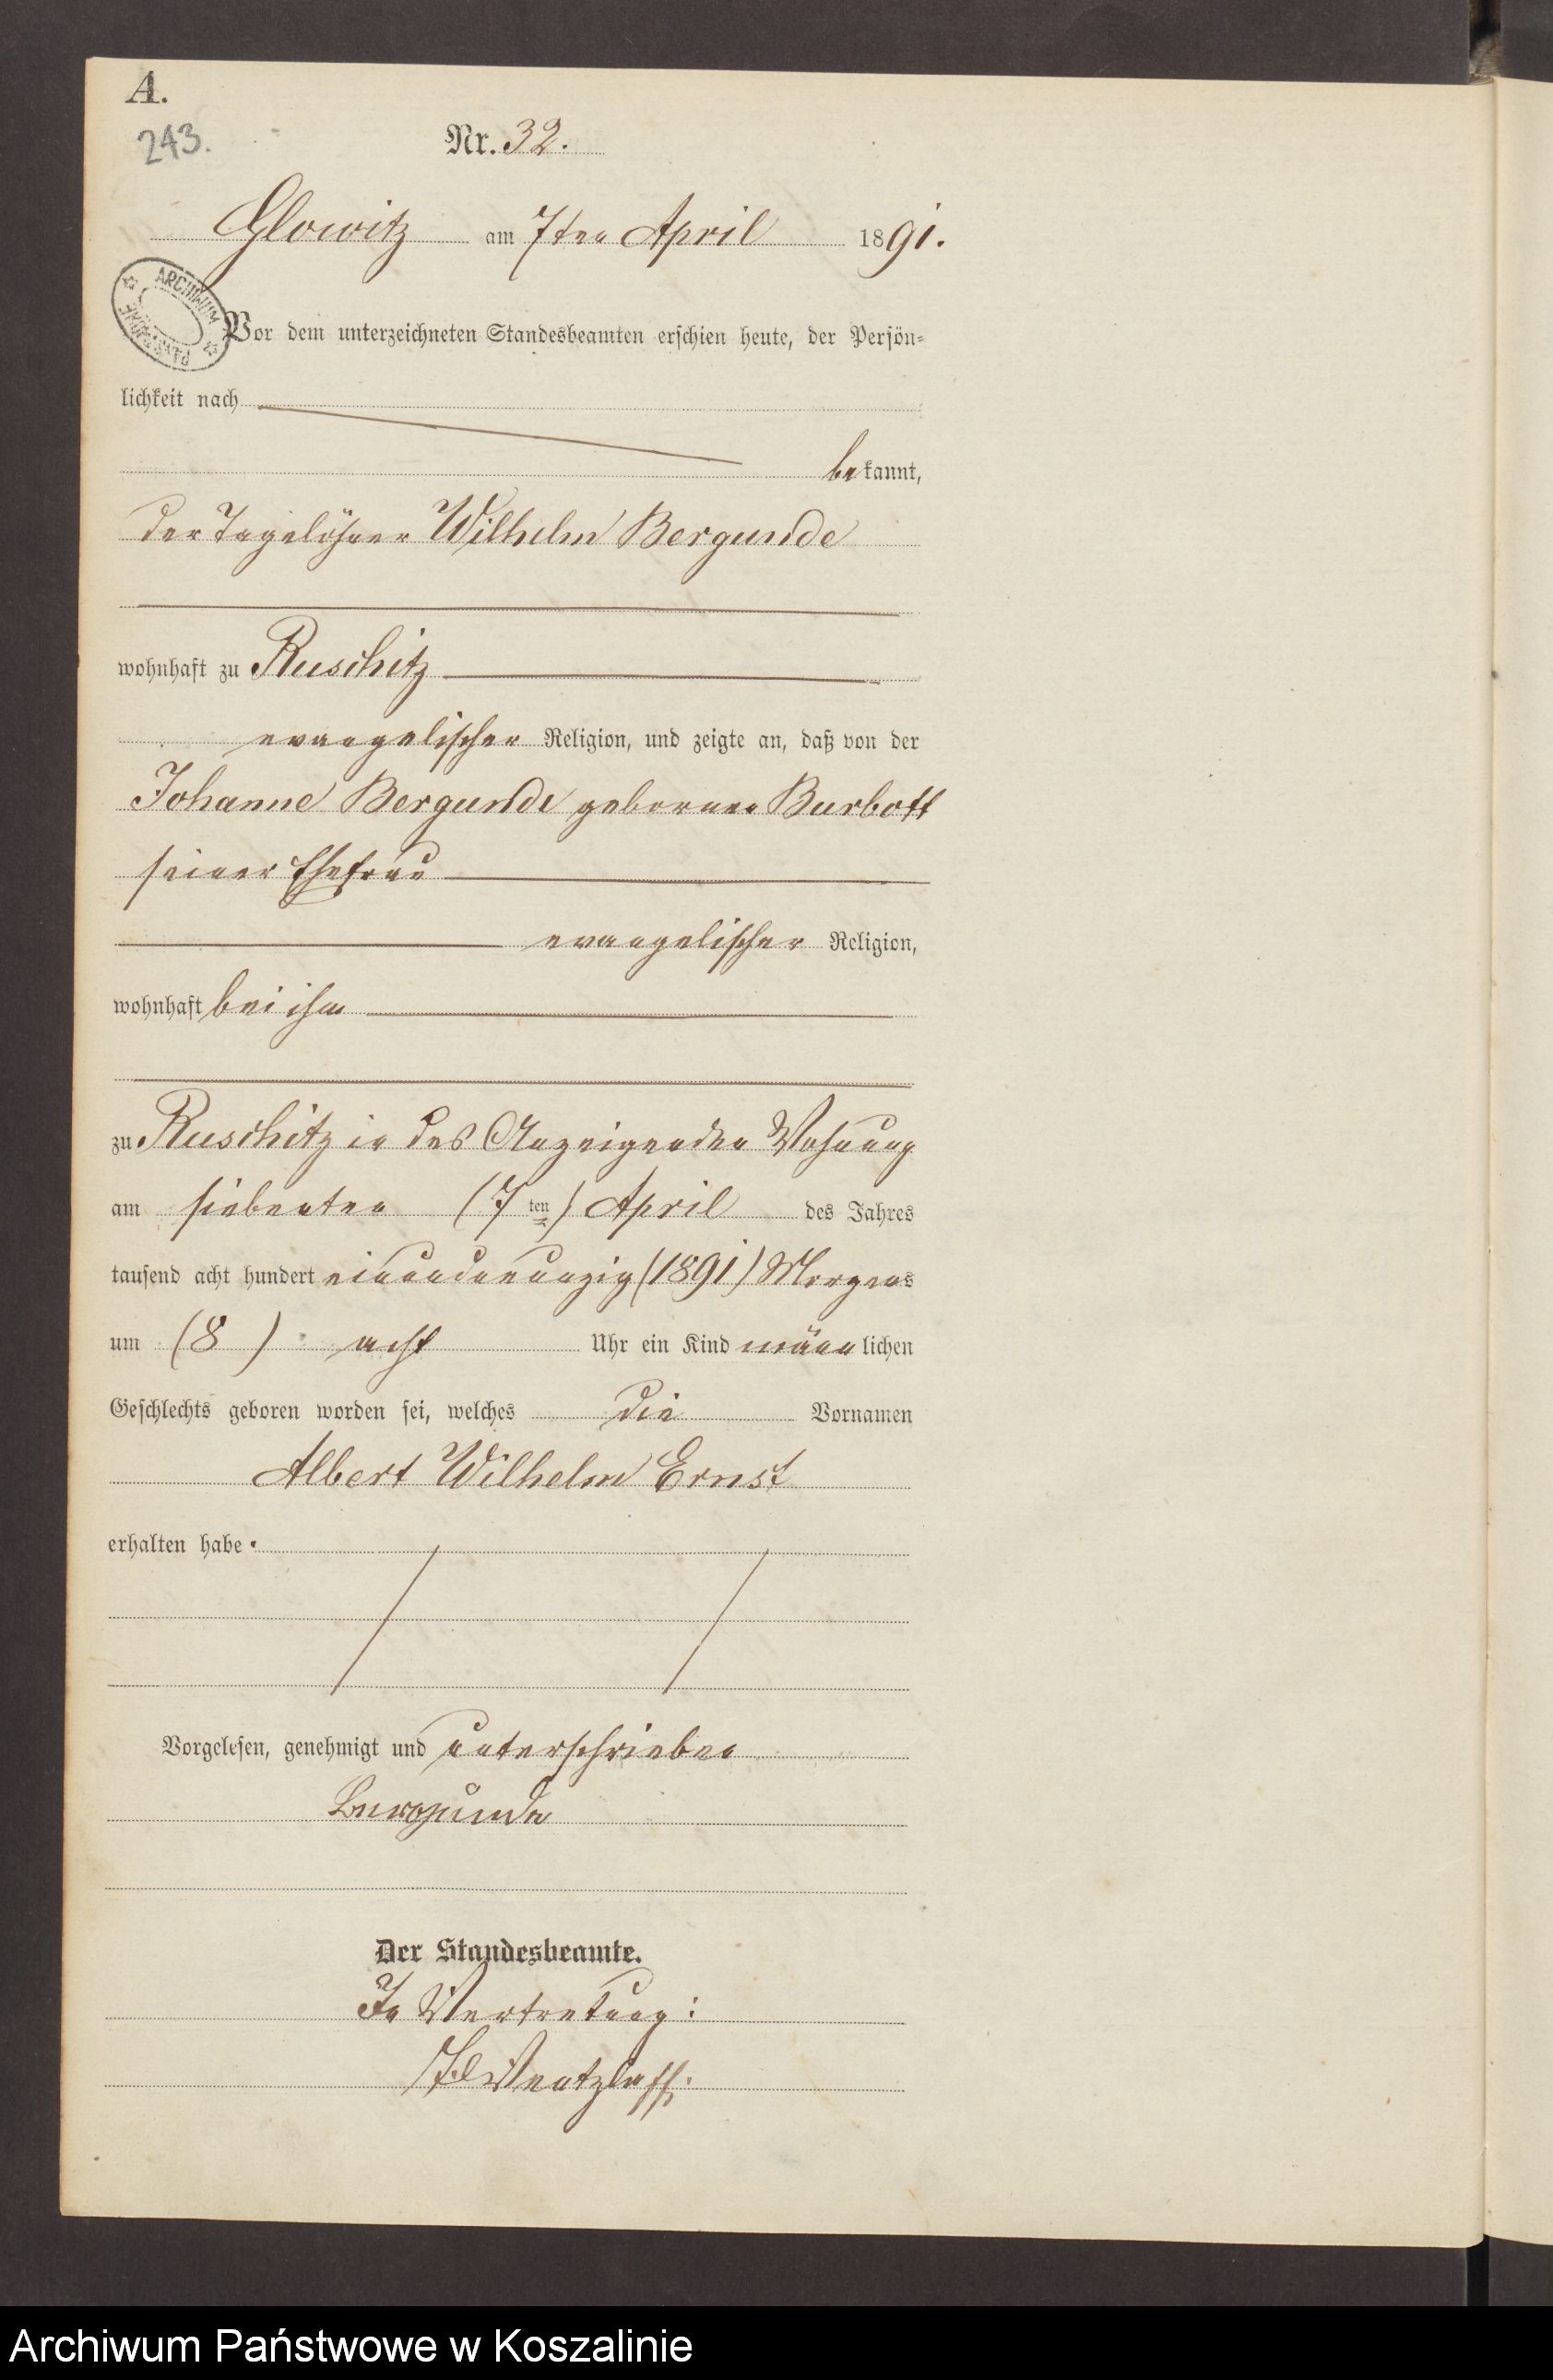 A.
243.
Nr. 32.
Glowitz am 7ten April 1891.
ARCHIWUM PAŃSTWOWE
Vor dem unterzeichneten Standesbeamten erschien heute, der Persön=
lichkeit nach
bekannt,
der Tagelöhner Wilhelm Bergunde
wohnhaft zu Ruschitz
evangelischen Religion, und zeigte an, daß von der
Johanne Bergunde gebornen Burbott
seiner Ehefrau
evangelischer Religion,
wohnhaft bei ihm
zu Ruschitz in des Anzeigenden Wohnung
am siebenten (7 ten) April des Jahres
tausend acht hundert einundneunzig (1891) Morgens
um (8) acht Uhr ein Kind männlichen
Geschlechts geboren worden sei, welches die Vornamen
Albert Wilhelm Ernst
erhalten habe.
Vorgelesen, genehmigt und unterschrieben
Bergunde
Der Standesbeamte.
In Vertretung:
Wentzlaff.
Archiwum Państwowe w Koszalinie